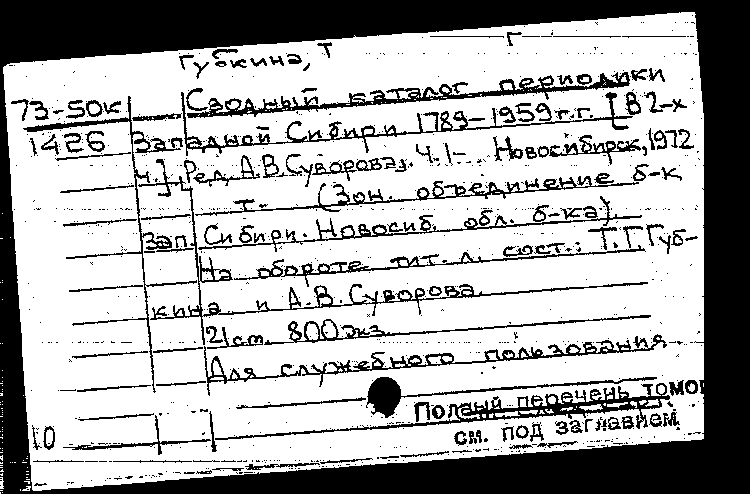 Губкина, Т Г
73-50к Сводный каталог периодики
1426 Западной Сибири 1789-1959г.г. [В 2-х
ч.], Ред. А.В.Суворова. Ч.1- Новосибирск, 1972
т. (Зон. объединение б-к
Зап. Сибири. Новосиб. обл. б-ка).
На обороте тит. л. сост.: Т.Г.Губ-
кина и А.В.Суворова.
21 см. 800 экз.
Для служебного пользования.
Полный перечень томов
10 см. под заглавием